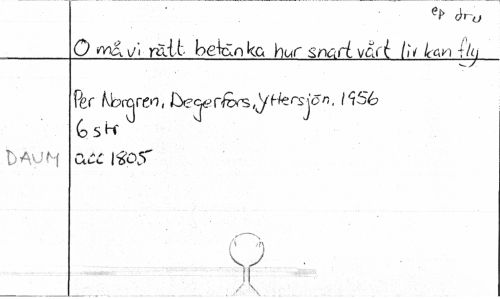 ep dru
O må vi rätt betänka hur snart vårt liv kan fly
Per Norgren, Degerfors, Yttersjön. 1956
6 str
DAUM acc 1805